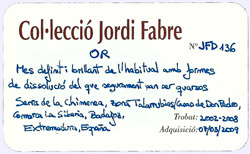 Col·lecció Jordi Fabre
Nº JFD 136
OR
Mes definit i brillant de l'habitual amb formes
de dissolució del que segurament van ser quarsos
Serra de la Chimenea, zona Talarrubias/Casas de Don Pedro,
Comarca La Siberia, Badajoz,
Extremadura, España
Trobat: 2002-2008
Adquisició: 07/03/2009